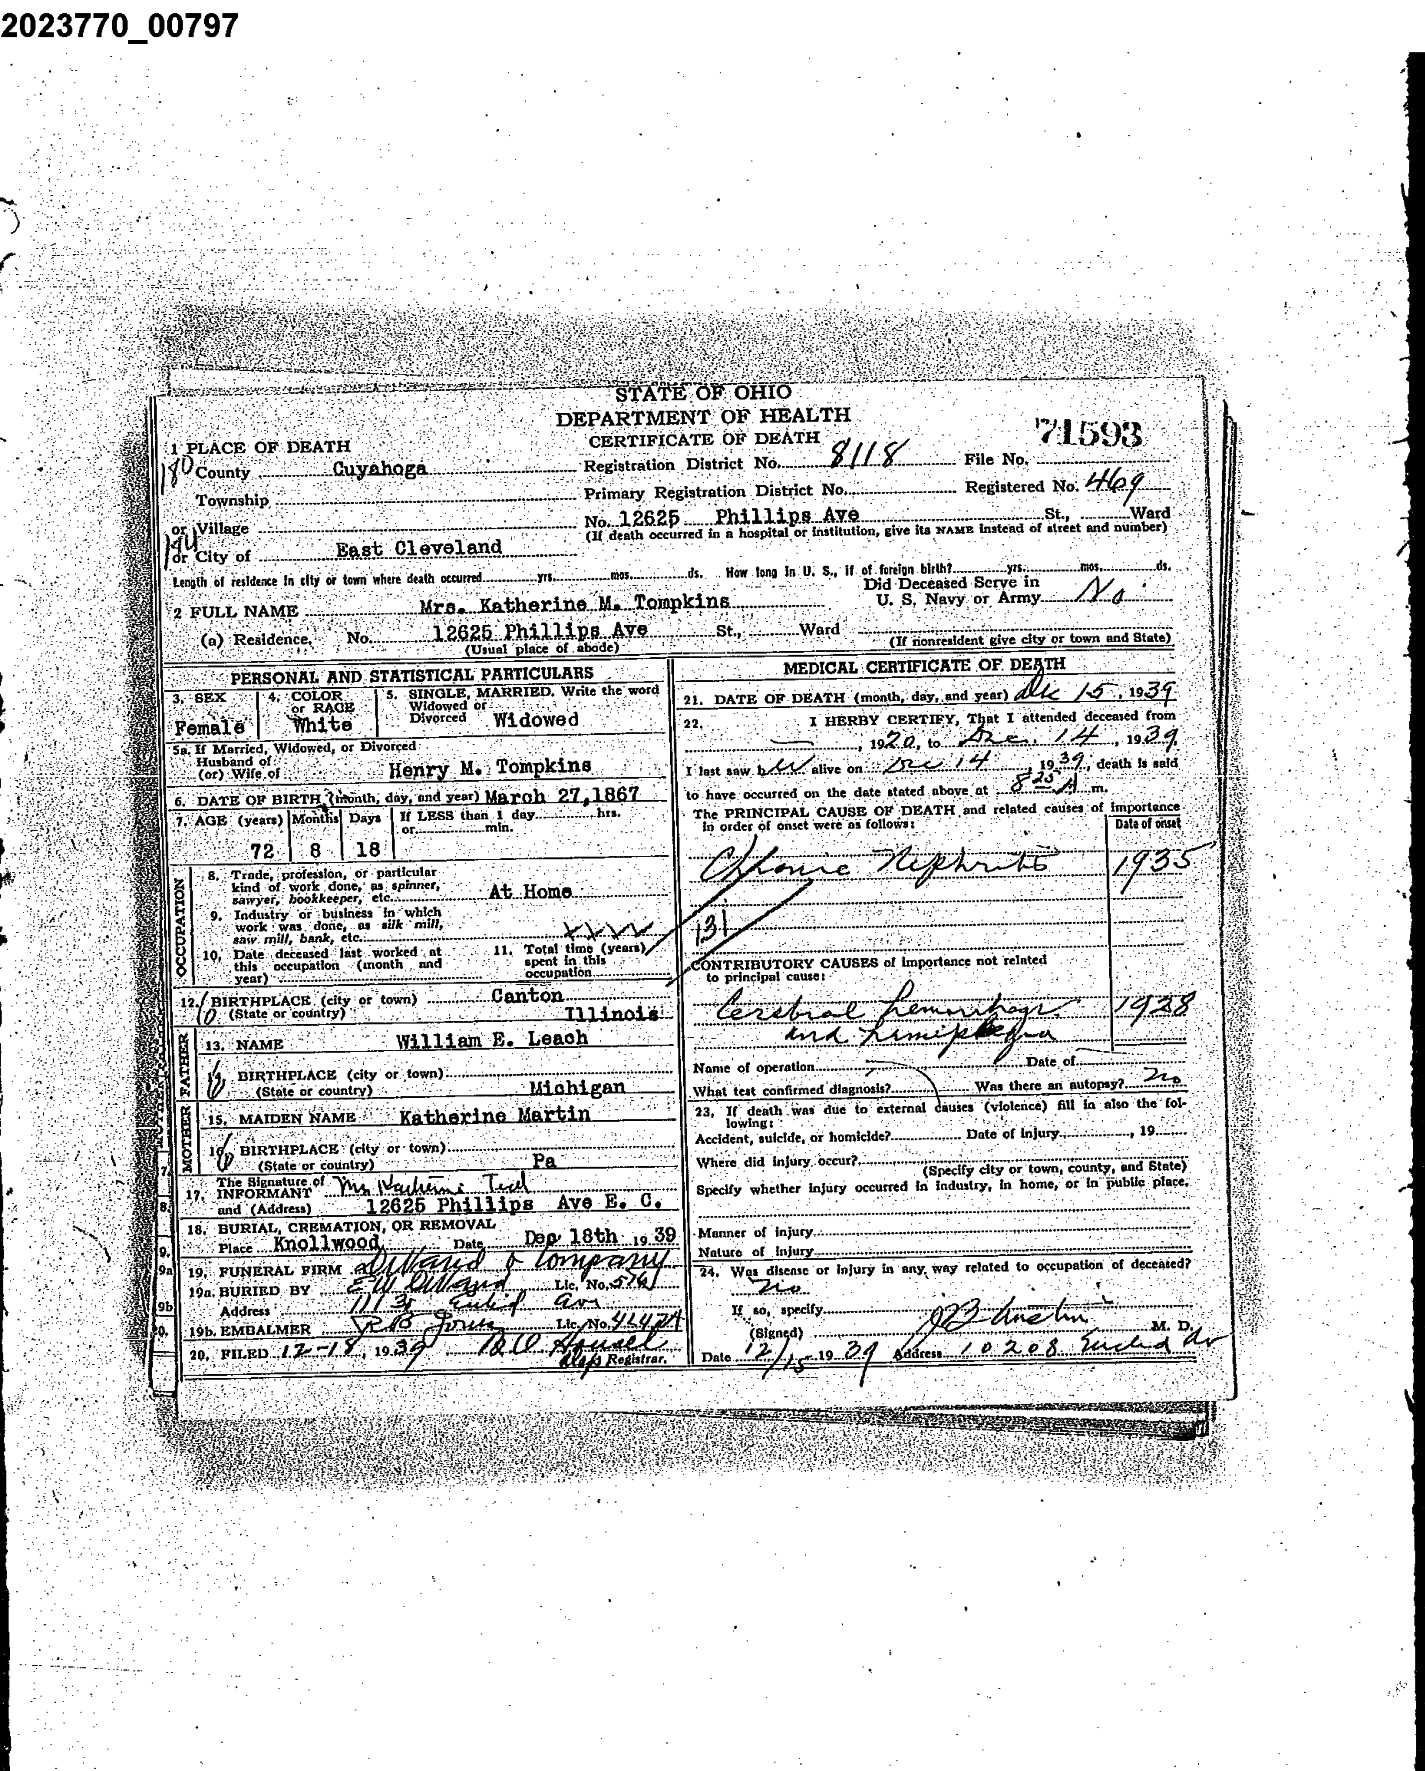 2023770_00797
STATE OF OHIO
DEPARTMENT OF HEALTH
CERTIFICATE OF DEATH
71593
1 PLACE OF DEATH
180
County Cuyahoga
Registration District No. 8118
File No.
Township
Primary Registration District No.
Registered No. 469
or Village
No. 12625 Phillips Ave St., Ward
(If death occurred in a hospital or institution, give its NAME instead of street and number)
or City of East Cleveland
Length of residence in city or town where death occurred yrs. mos. ds. How long in U. S., if of foreign birth? yrs. mos. ds.
Did Deceased Serve in
U. S. Navy or Army No
2 FULL NAME Mrs. Katherine M. Tompkins
(a) Residence. No. 12625 Phillips Ave St., Ward
(Usual place of abode)
(If nonresident give city or town and State)
PERSONAL AND STATISTICAL PARTICULARS
3. SEX
Female
4. COLOR
or RACE
White
5. SINGLE, MARRIED. Write the word
Widowed or
Divorced Widowed
5a. If Married, Widowed, or Divorced
Husband of
(or) Wife of Henry M. Tompkins
6. DATE OF BIRTH (month, day, and year) March 27,1867
7. AGE (years) Months Days If LESS than 1 day hrs.
or min.
72 8 18
OCCUPATION
8. Trade, profession, or particular
kind of work done, as spinner,
sawyer, bookkeeper, etc. At Home
9. Industry or business in which
work was done, as silk mill,
saw mill, bank, etc.
10. Date deceased last worked at
this occupation (month and
year)
11. Total time (years)
spent in this
occupation
12. BIRTHPLACE (city or town) Canton
(State or country) Illinois
FATHER
13. NAME William E. Leach
BIRTHPLACE (city or town)
(State or country) Michigan
MOTHER
15. MAIDEN NAME Katherine Martin
BIRTHPLACE (city or town)
(State or country) Pa
The Signature of
17. INFORMANT Mrs Katherine
and (Address) 12625 Phillips Ave E. C.
18. BURIAL, CREMATION, OR REMOVAL
Place Knollwood Date Dep 18th 1939
19. FUNERAL FIRM & Company
19a. BURIED BY Lic. No.
Address Euclid Ave
19b. EMBALMER Jones Lic. No.
20. FILED 12-18, 1939
Registrar.
MEDICAL CERTIFICATE OF DEATH
21. DATE OF DEATH (month, day, and year) Dec 15, 1939
22. I HERBY CERTIFY, That I attended deceased from
, 1920, to Dec. 14, 1939,
I last saw h alive on Dec 14, 1939, death is said
to have occurred on the date stated above at 8 25 A m.
The PRINCIPAL CAUSE OF DEATH and related causes of importance
in order of onset were as follows:
Date of onset
Chronic Nephritis 1935
131
CONTRIBUTORY CAUSES of importance not related
to principal cause:
Cerebral hemorrhage 1928
and hemiplegia
Name of operation Date of
What test confirmed diagnosis? Was there an autopsy? No
23. If death was due to external causes (violence) fill in also the fol-
lowing:
Accident, suicide, or homicide? Date of injury , 19
Where did injury occur?
(Specify city or town, county, and State)
Specify whether injury occurred in industry, in home, or in public place.
Manner of injury
Nature of injury
24. Was disease or injury in any way related to occupation of deceased?
No
If so, specify
(Signed) M. D.
Date 12/15 1939 Address 10208 Euclid Av